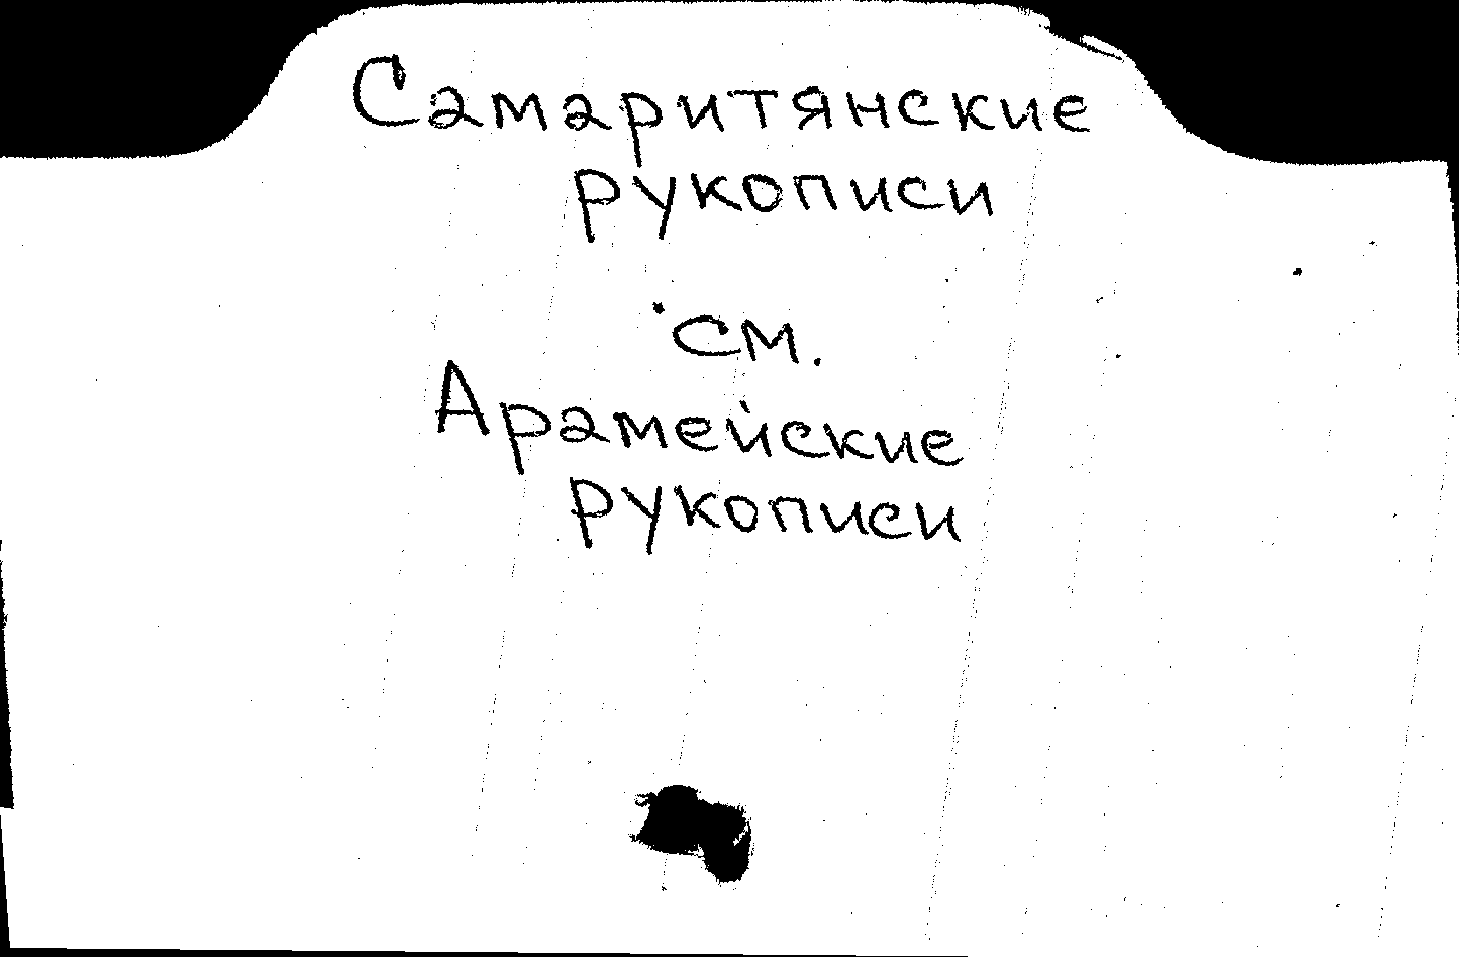 Самаритянские
рукописи
см.
Арамейские
рукописи